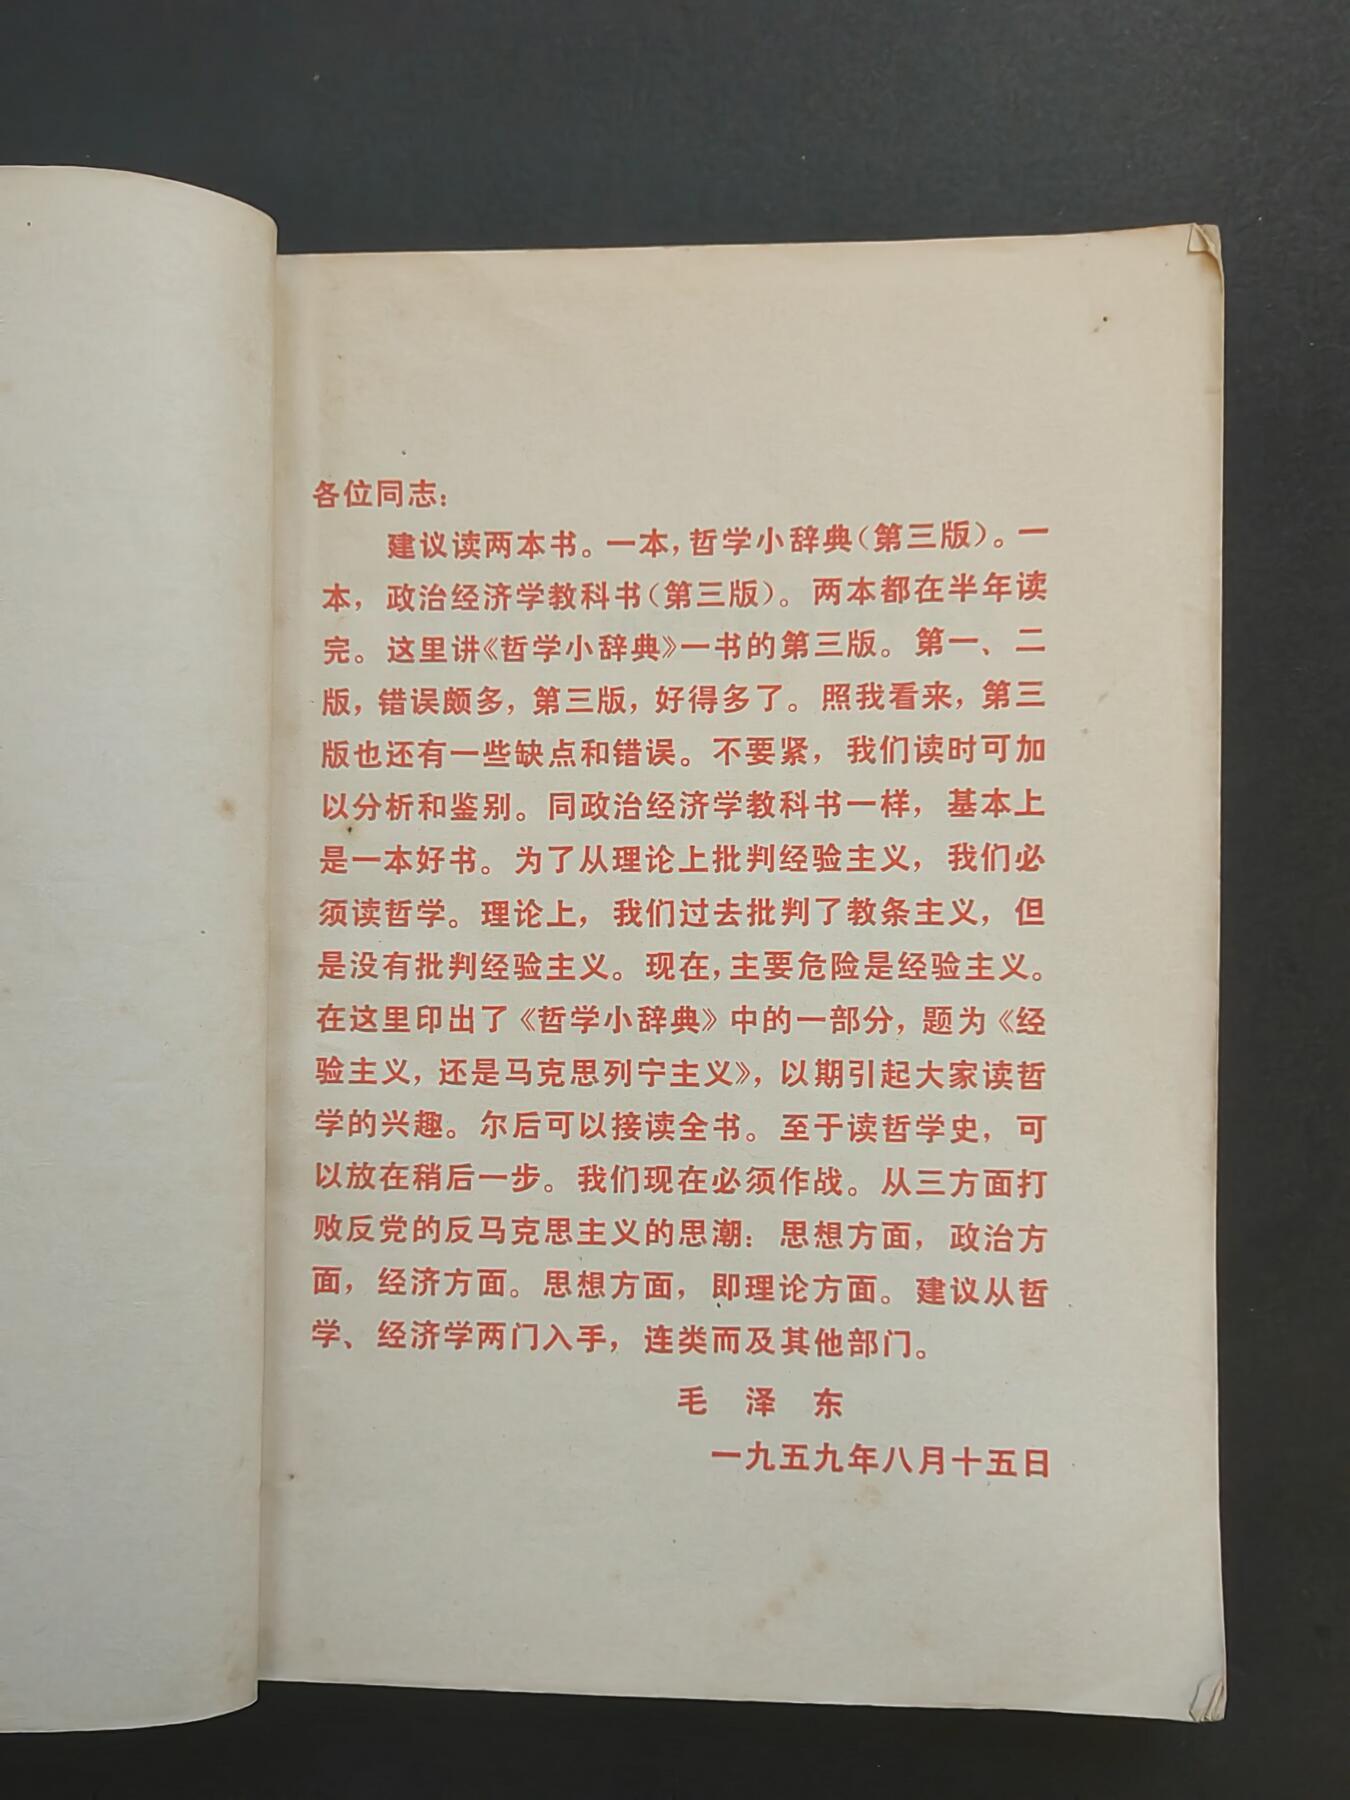 各位同志：
建议读两本书。一本，哲学小辞典（第三版）。一
本，政治经济学教科书（第三版）。两本都在半年读
完。这里讲《哲学小辞典》一书的第三版。第一、二
版，错误颇多，第三版，好得多了。照我看来，第三
版也还有一些缺点和错误。不要紧，我们读时可加
以分析和鉴别。同政治经济学教科书一样，基本上
是一本好书。为了从理论上批判经验主义，我们必
须读哲学。理论上，我们过去批判了教条主义，但
是没有批判经验主义。现在，主要危险是经验主义。
在这里印出了《哲学小辞典》中的一部分，题为《经
验主义，还是马克思列宁主义》，以期引起大家读哲
学的兴趣。尔后可以接读全书。至于读哲学史，可
以放在稍后一步。我们现在必须作战。从三方面打
败反党的反马克思主义的思潮：思想方面，政治方
面，经济方面。思想方面，即理论方面。建议从哲
学、经济学两门入手，连类而及其他部门。
毛泽东
一九五九年八月十五日